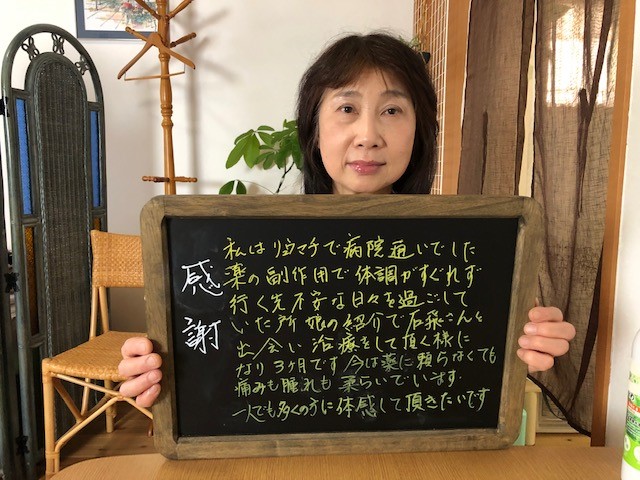 感謝
私はリウマチで病院通いでした
薬の副作用で体調がすぐれず
行く先不安な日々を過ごして
いた所 娘の紹介で石飛さんと
出会い 治療をして頂く様に
なり3ヶ月です 今は薬に頼らなくても
痛みも腫れも 楽らいでいます.
一人でも多くの方に体感して頂きたいです